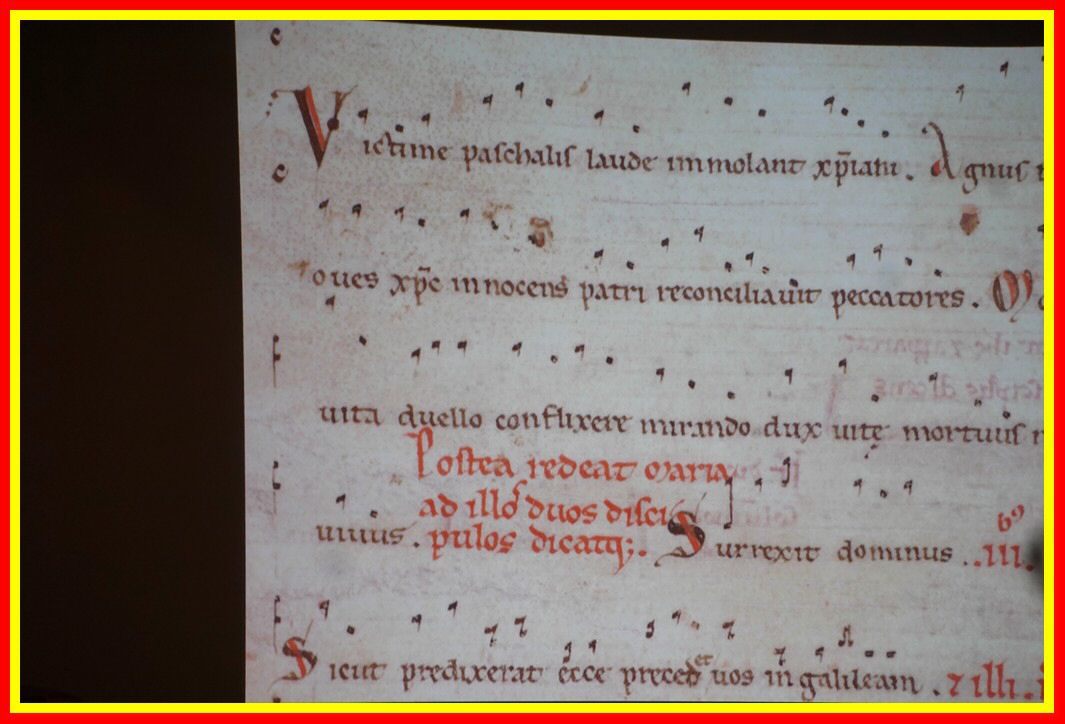 c
Victime paschalis laude immolant xp̄iani. Agnus
c
oues xp̄c innocens patri reconciliauit peccatores.
uita duello conflixere mirando dux uite mortuus
Postea redeat maria
ad illos duos disci
uiuus. pulos dicatq;. Surrexit dominus .. iii.
Sicut predixerat ecce precedet uos in galileam. ⁊ illi.